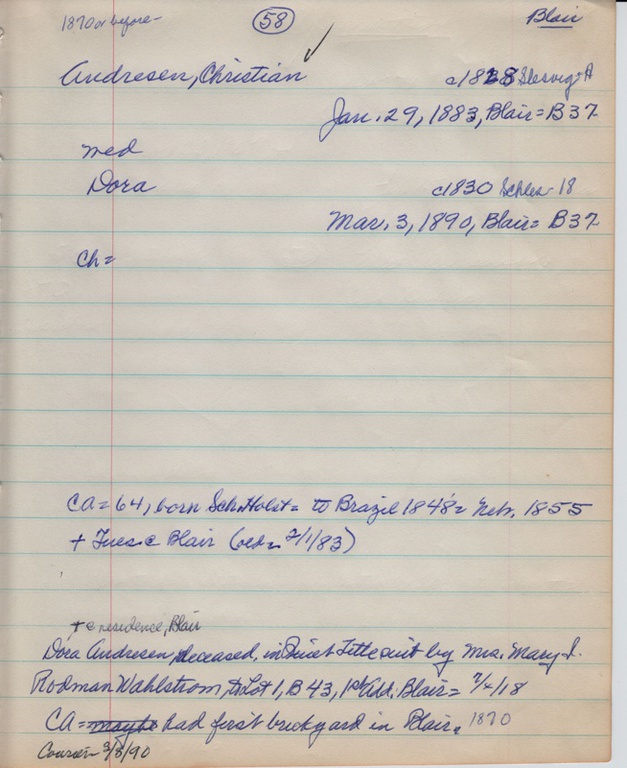 1870 or before-
58
Blair
Andresen, Christian
c1828 Slesvig-A
Jan. 29, 1883, Blair = B37
med
Dora
c1830 Schles- 18
Mar. 3, 1890, Blair = B37
Ch =
CA = 64, born Sch. Holst = to Brazil 1848 = Neb. 1855
+ Tues. @ Blair (2/1/83)
+ @ residence, Blair
Dora Andresen, deceased, in Quiet Title suit by Mrs. Mary I.
Rodman Wahlstrom, to Lot 1, B 43, 1st Add. Blair = 7/4/18
CA = maybe had first brickyard in Blair, 1870
Courier 3/8/90